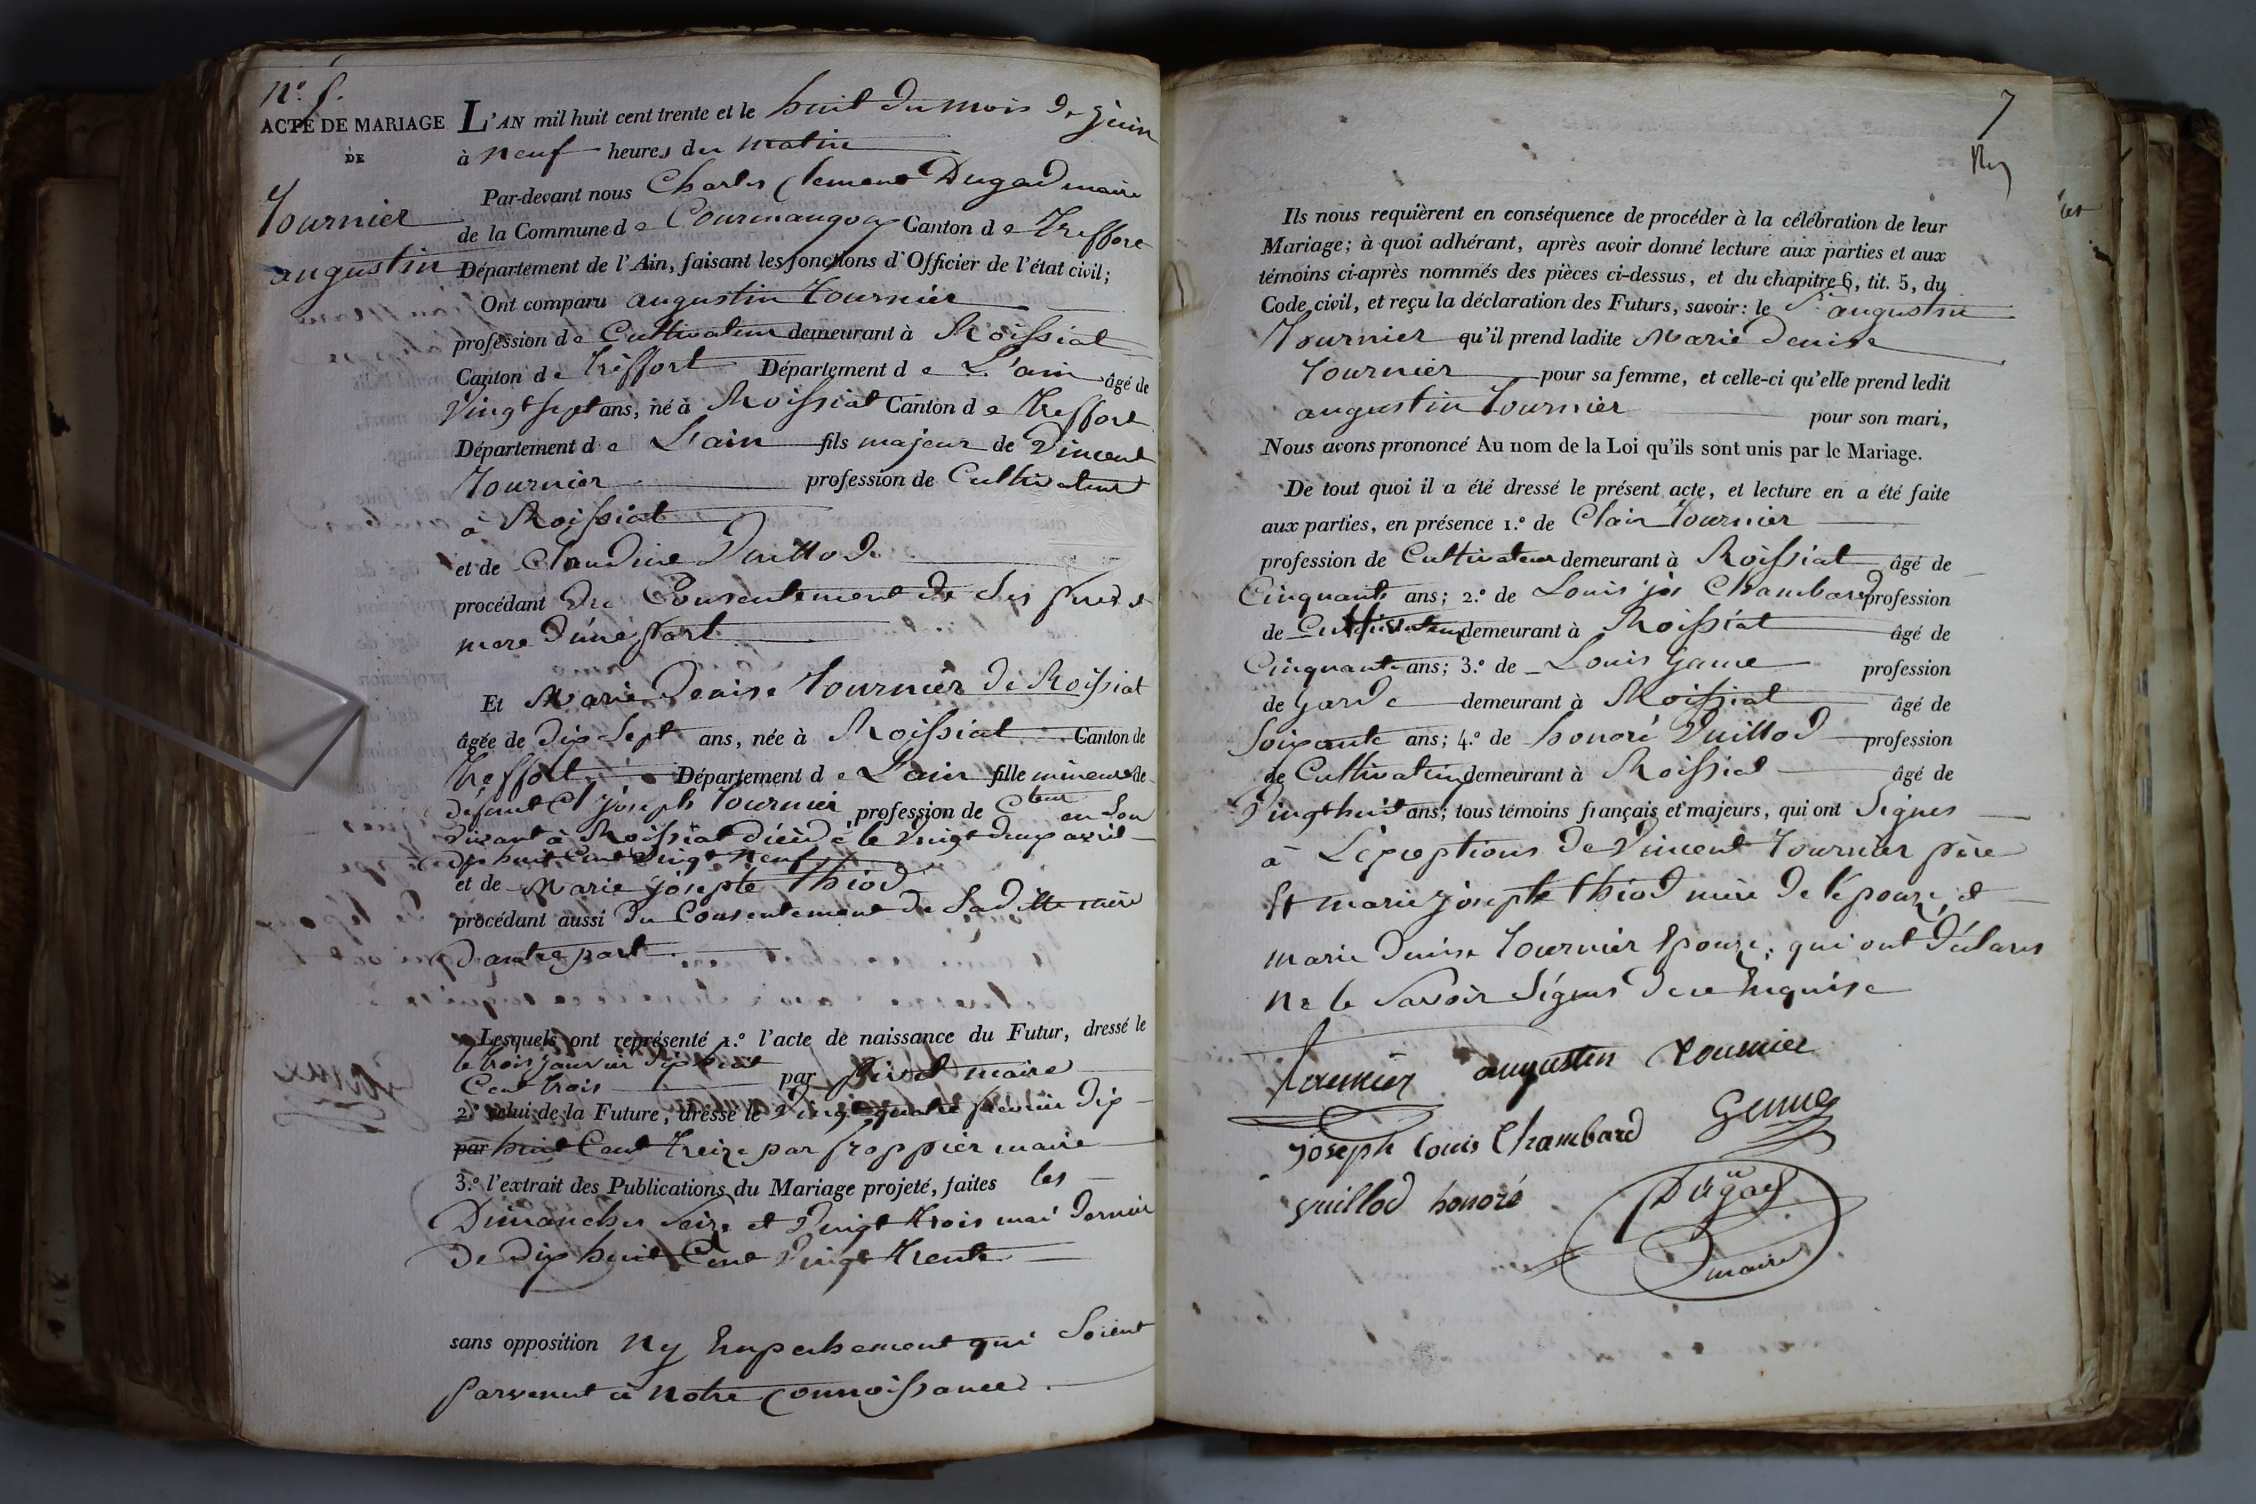 N.º 5.
ACTE DE MARIAGE
DE
Tournier
augustin
L'AN mil huit cent trente et le huit du mois de juin
à neuf heures du matin
Par-devant nous Charles Clement Dugad maire
de la Commune de Courmangoux Canton de Treffort
Département de l'Ain, faisant les fonctions d'Officier de l'état civil;
Ont comparu augustin Tournier
profession de Cultivateur demeurant à Roissiat
Canton de Treffort Département de L'ain âgé de
vingt sept ans, né à Roissiat Canton de Treffort
Département de L'ain fils majeur de Vincent
Tournier profession de Cultivateur
à Roissiat
et de Claudine Vuillod
procédant du Consentement de ses pere et
mere d'une part
Et Marie Denise Tournier de Roissiat
âgée de dix sept ans, née à Roissiat Canton de
Treffort Département de L'ain fille mineure de
défunt Cl joseph Tournier profession de Cteur en son
vivant à Roissiat décédé le vingt deux avril
dix huit Cent vingt neuf
et de Marie josephte Thiod
procédant aussi du Consentement de Saditte mère
d'autre part
Lesquels ont représenté 1.º l'acte de naissance du Futur, dressé le
le trois janvier dix huit
Cent trois par maire
2.º celui de la Future, dressé le vingt quatre fevrier dix
par huit Cent treize par froppier maire
3.º l'extrait des Publications du Mariage projeté, faites les
Dimanches seize et vingt trois mai dernier
de dix huit Cent vingt trente
sans opposition ny Empechement qui soient
parvenut à notre connoissance.
7
Ils nous requièrent en conséquence de procéder à la célébration de leur
Mariage; à quoi adhérant, après avoir donné lecture aux parties et aux
témoins ci-après nommés des pièces ci-dessus, et du chapitre 6, tit. 5, du
Code civil, et reçu la déclaration des Futurs, savoir: le S. augustin
Tournier qu'il prend ladite Marie denise
Tournier pour sa femme, et celle-ci qu'elle prend ledit
augustin Tournier pour son mari,
Nous avons prononcé Au nom de la Loi qu'ils sont unis par le Mariage.
De tout quoi il a été dressé le présent acte, et lecture en a été faite
aux parties, en présence 1.º de Clair Tournier
profession de Cultivateur demeurant à Roissiat âgé de
Cinquante ans; 2.º de Louis jos Chambard profession
de Cultivateur demeurant à Roissiat âgé de
Cinquante ans; 3.º de Louis game profession
de garde demeurant à Roissiat âgé de
Soixante ans; 4.º de honoré Vuillod profession
de Cultivateur demeurant à Roissiat âgé de
Vingt huit ans; tous témoins français et majeurs, qui ont Signés
à L'exceptions de Vincent Tournier père
Et marie josephte thiod mère de l'épouze, et
marie denise Tournier Epouze, qui ont déclarés
ne le savoir signer de ce Enquise
Tournier augustin tournier
joseph louis Chambard Game
vuillod honoré Dugad
maire